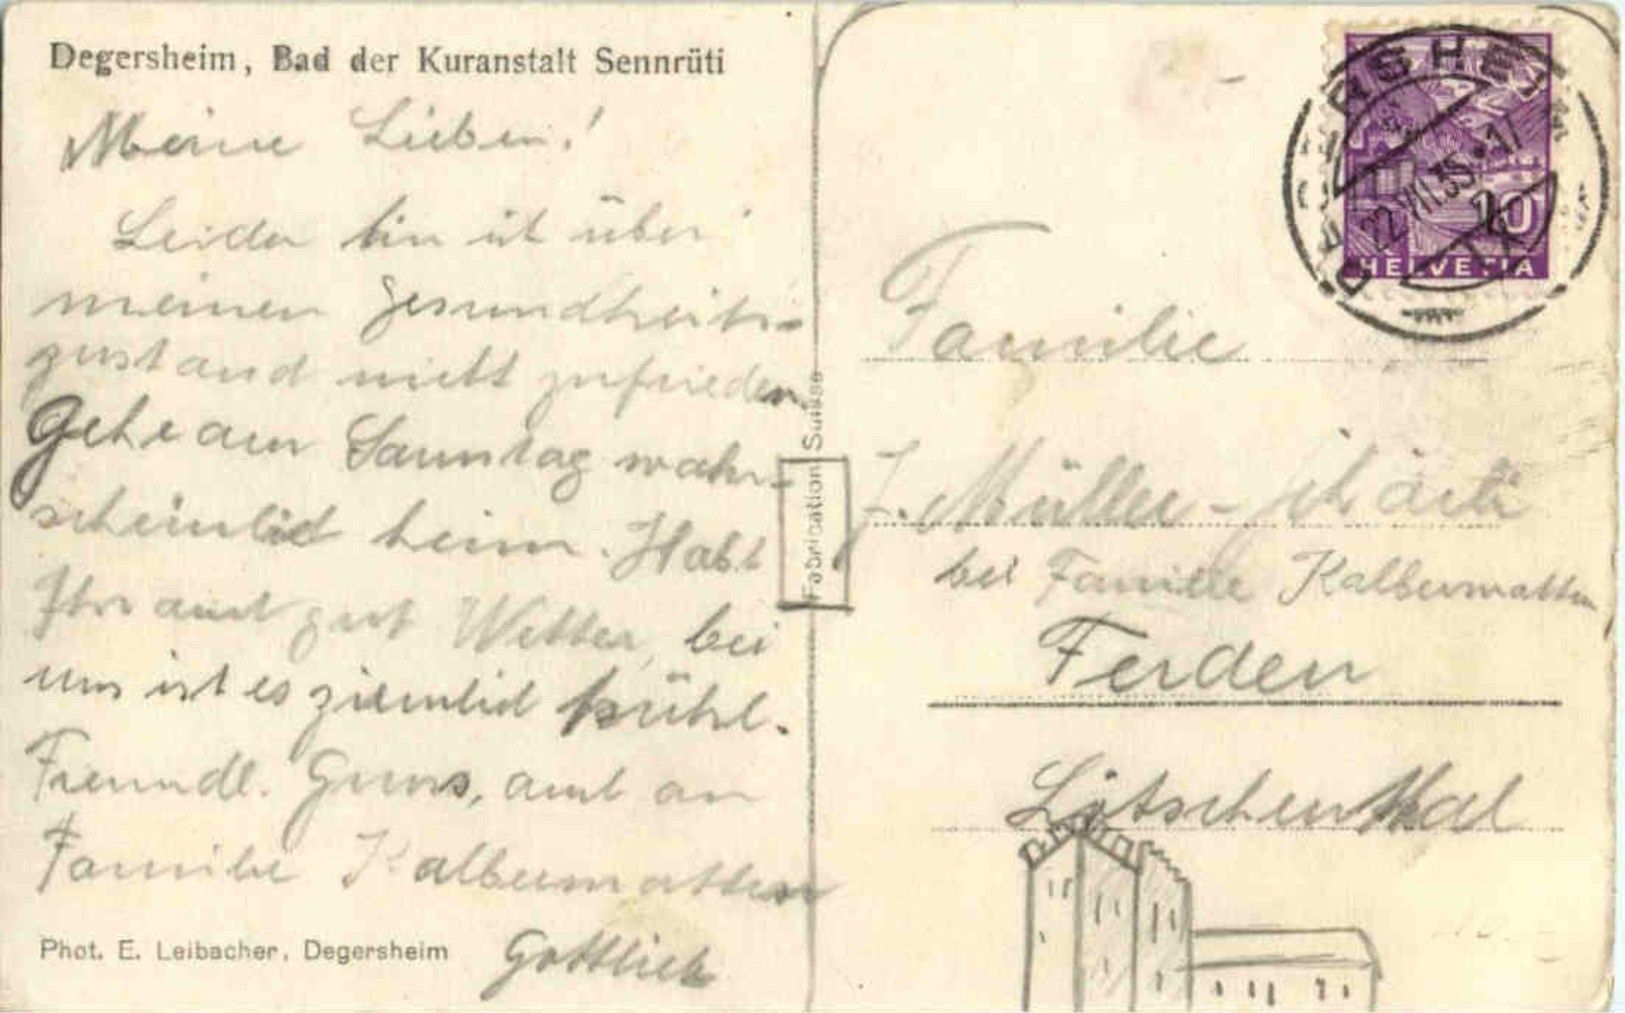 Degersheim, Bad der Kuranstalt Sennrüti
Meine Lieben!
Leider bin ich über
meinen Gesundheits-
zustand nicht zufrieden
Gehe am Sonntag wahr-
scheinlich heim. Habt
Ihr auch gut Wetter, bei
uns ist es ziemlich kühl.
Freundl. Gruss, auch an
Familie Kalbermatten
Gottlieb
Phot. E. Leibacher, Degersheim
Fabrication Suisse
DEGERSHEIM
22.VII.35.-17
10
HELVETIA
Familie
J. Müller-
bei Familie Kalbermatten
Ferden
Lötschenthal